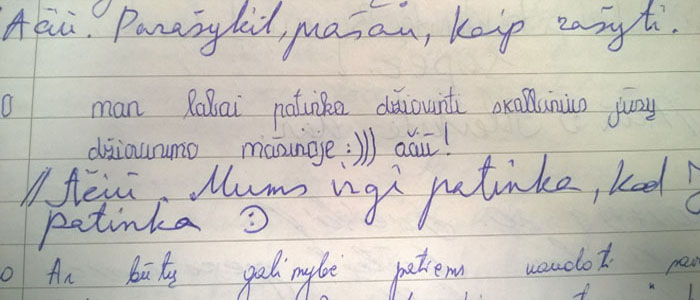 Ačiū. Parašykit, prašau, kaip rašyti.
man labai patinka džiovinti skalbinius jūsų
džiovinimo mašinoje :))) ačiū!
// Ačiū. Mums irgi patinka, kad
patinka :)
Ar būtų galimybė patiems naudoti